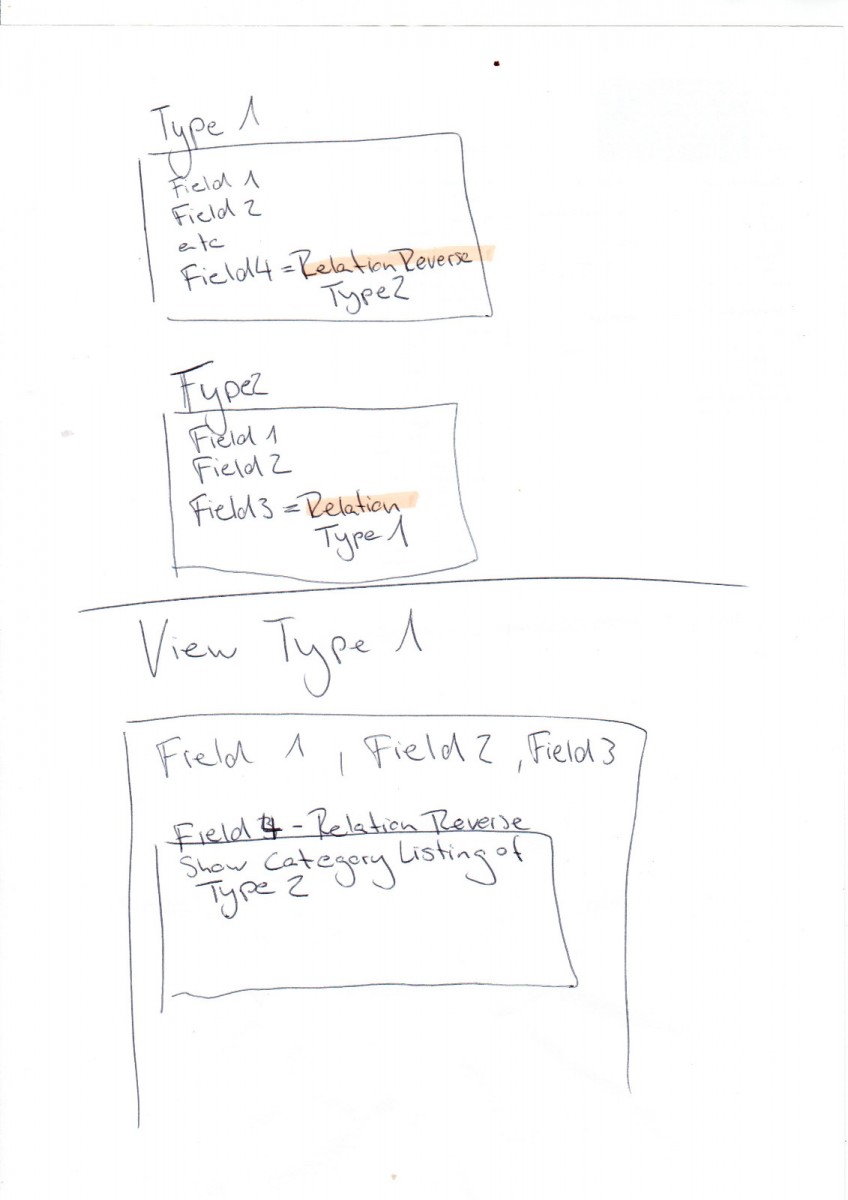 Type 1
Field 1
Field 2
etc
Field4 = Relation Reverse
Type2
Type2
Field 1
Field 2
Field3 = Relation
Type 1
View Type 1
Field 1, Field 2, Field3
Field 4 - Relation Reverse
Show Category Listing of
Type 2